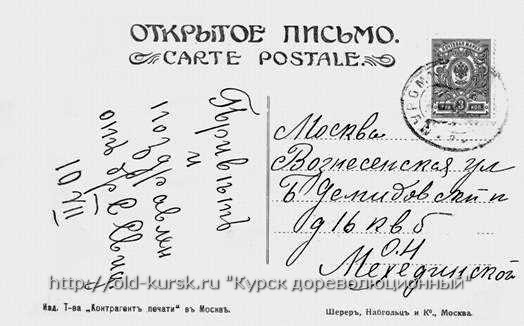 ОТКРЫТОЕ ПИСЬМО.
CARTE POSTALE.
3 КОП.
Привѣтъ
и
поздравлен
Москва
Вознесенская ул
Б Демидовскій п
д 16 кв. 6
О. Н
Мехединской
http://old-kursk.ru "Курск дореволюционный"
Изд. Т-ва „Контрагент печати“ въ Москвѣ.
Шереръ, Набгольцъ и Кº., Москва.